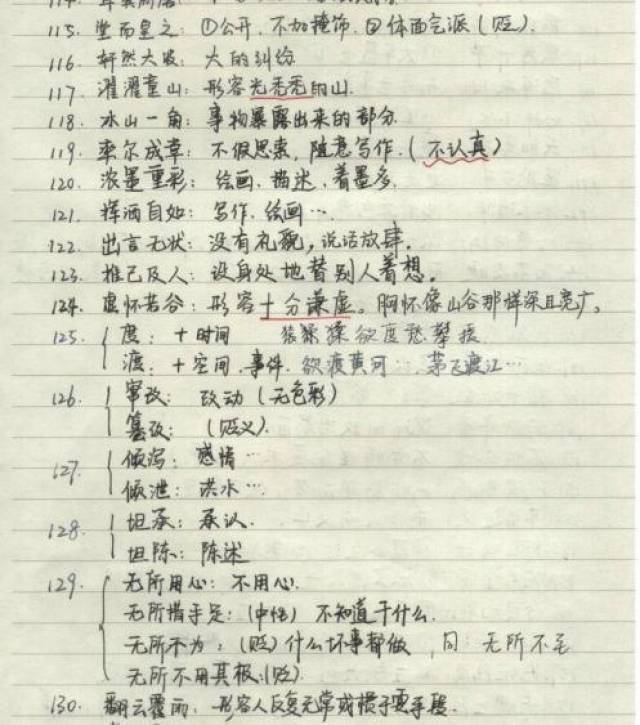 115. 堂而皇之: ①公开, 不加掩饰, ②体面气派 (贬).
116. 轩然大波: 大的纠纷
117. 濯濯童山: 形容光秃秃的山.
118. 冰山一角: 事物暴露出来的部分.
119. 率尔成章: 不假思索, 随意写作. (不认真)
120. 浓墨重彩: 绘画、描述, 着墨多.
121. 挥洒自如: 写作、绘画…
122. 出言无状: 没有礼貌, 说话放肆.
123. 推己及人: 设身处地替别人着想.
124. 虚怀若谷: 形容十分谦虚。胸怀像山谷那样深且宽广。
125. 度: +时间 猿猱欲度愁攀援
渡: +空间、事件. 欲渡黄河… 茅飞渡江…
126. 窜改: 改动 (无色彩)
篡改: (贬义).
127. 倾泻: 感情…
倾泄: 洪水…
128. 坦承: 承认.
坦陈: 陈述
129. 无所用心: 不用心.
无所措手足: (中性) 不知道干什么.
无所不为: (贬) 什么坏事都做, 同 无所不至
无所不用其极: (贬).
130. 翻云覆雨: 形容人反复无常或惯于耍手段.